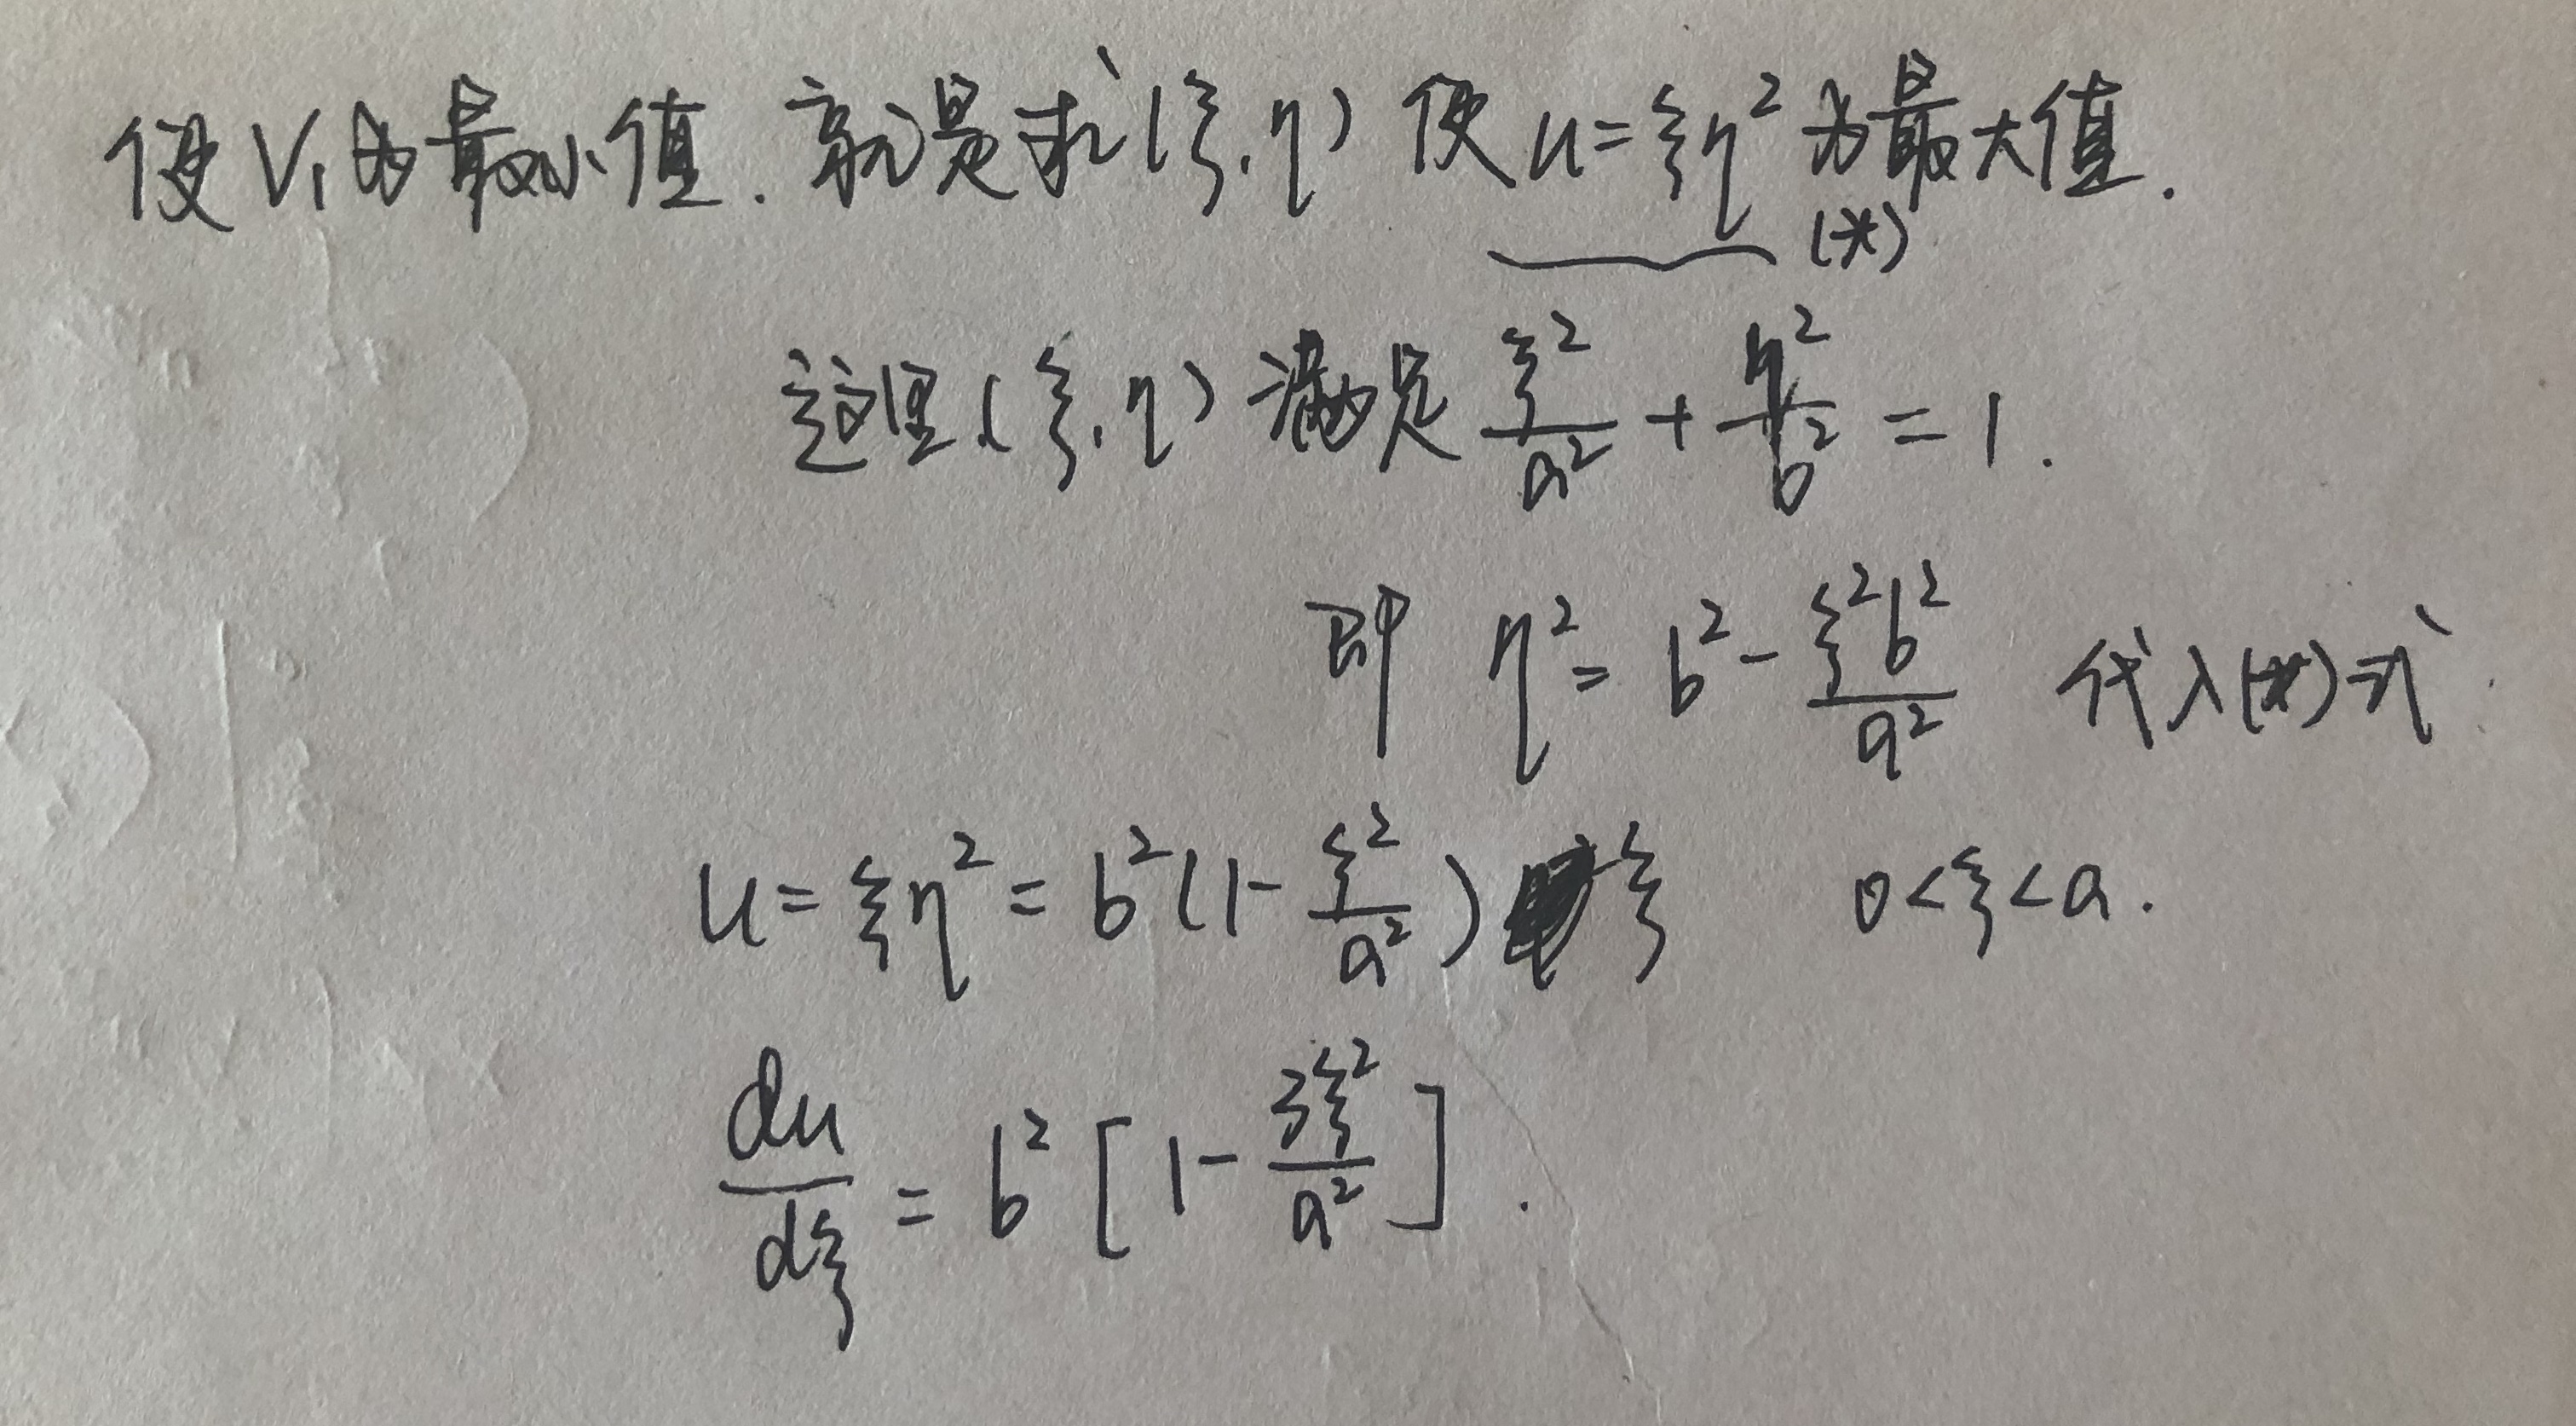 使V₁为最小值.就是求(ξ,η)使u=ξη²为最大值.
(*)
这里(ξ,η)满足ξ²/a²+η²/b²=1.
即 η²=b²-ξ²b²/a² 代入(*)式.
u=ξη²=b²(1-ξ²/a²)ξ 0<ξ<a.
du/dξ=b²[1-3ξ²/a²].